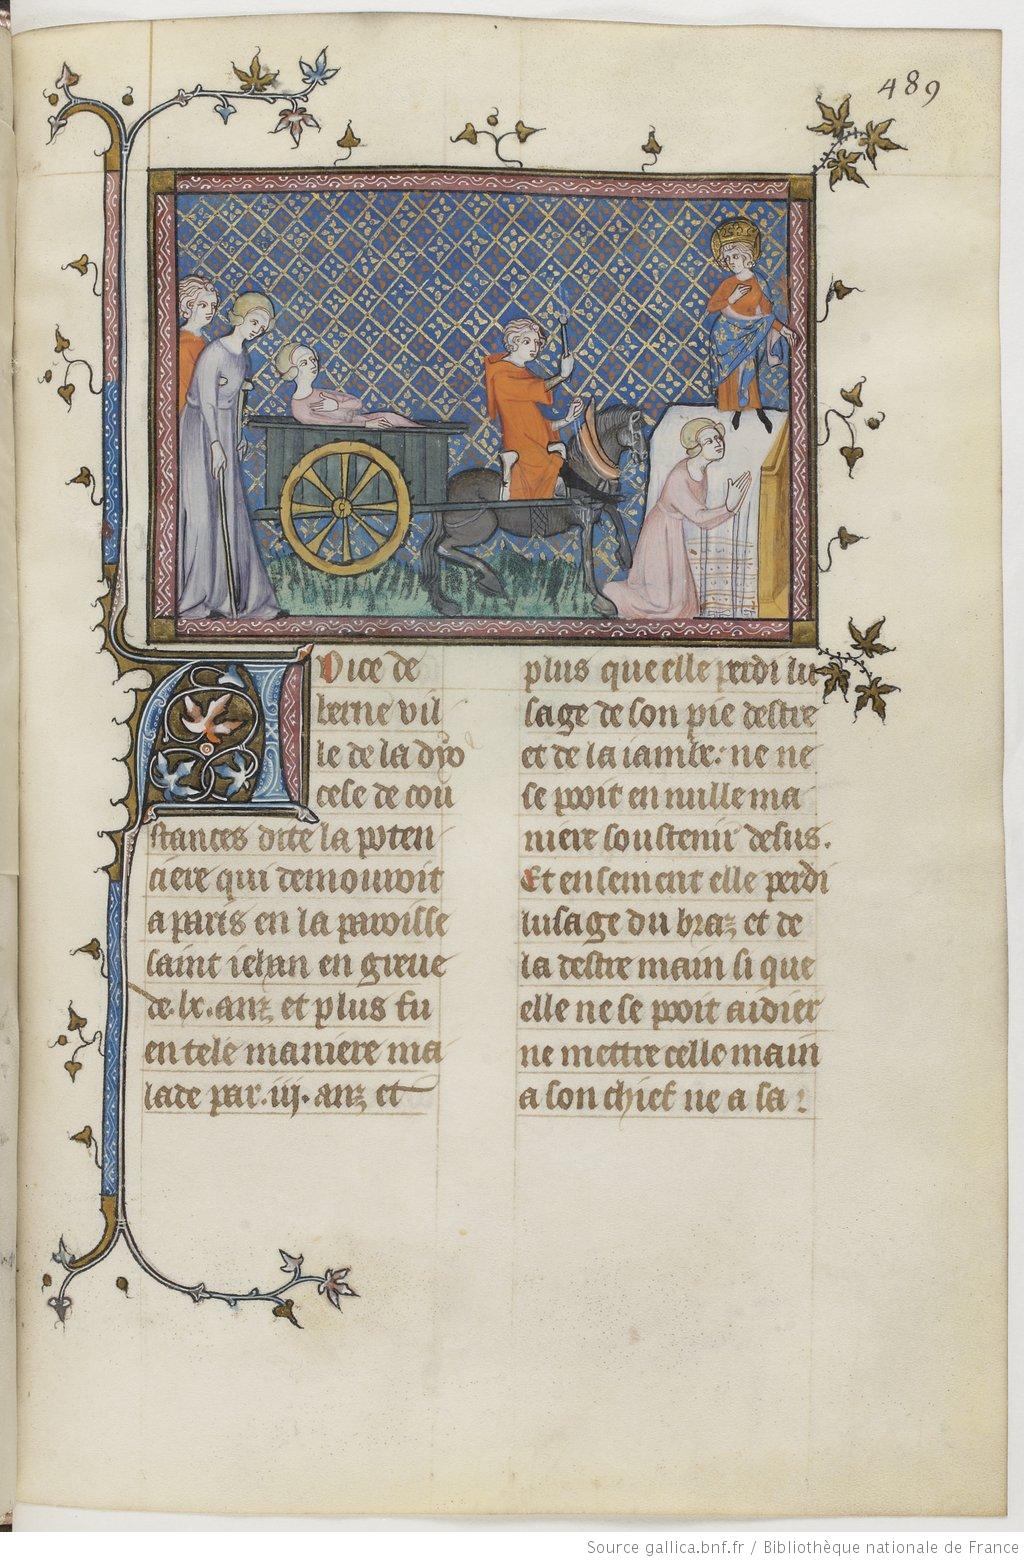 489
A
vice de
berne vil
le de la dyo
cese de cou
stances dite la poten
ciere qui demouroit
a paris en la paroisse
saint iehan en greue
de .lx. anz et plus fu
en tele maniere ma
lade par .iij. anz et
plus que elle perdi lu
sage de son pie destre
et de la iambe: ne ne
se pooit en nulle ma
niere soustenir desus.
Et ensement elle perdi
lusage du braz et de
la destre main si que
elle ne se pooit aidier
ne mettre celle main
a son chief ne a sa
Source gallica.bnf.fr / Bibliothèque nationale de France